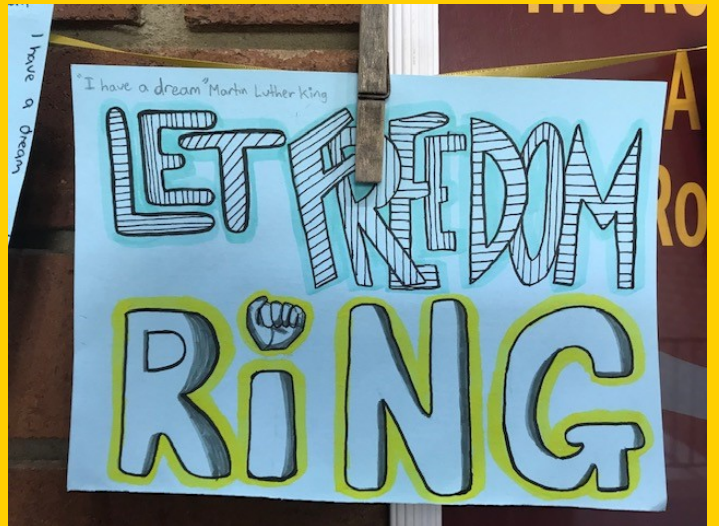 I have a dream
"I have a dream" Martin Luther king
LET FREEDOM
RiNG
A
Ro